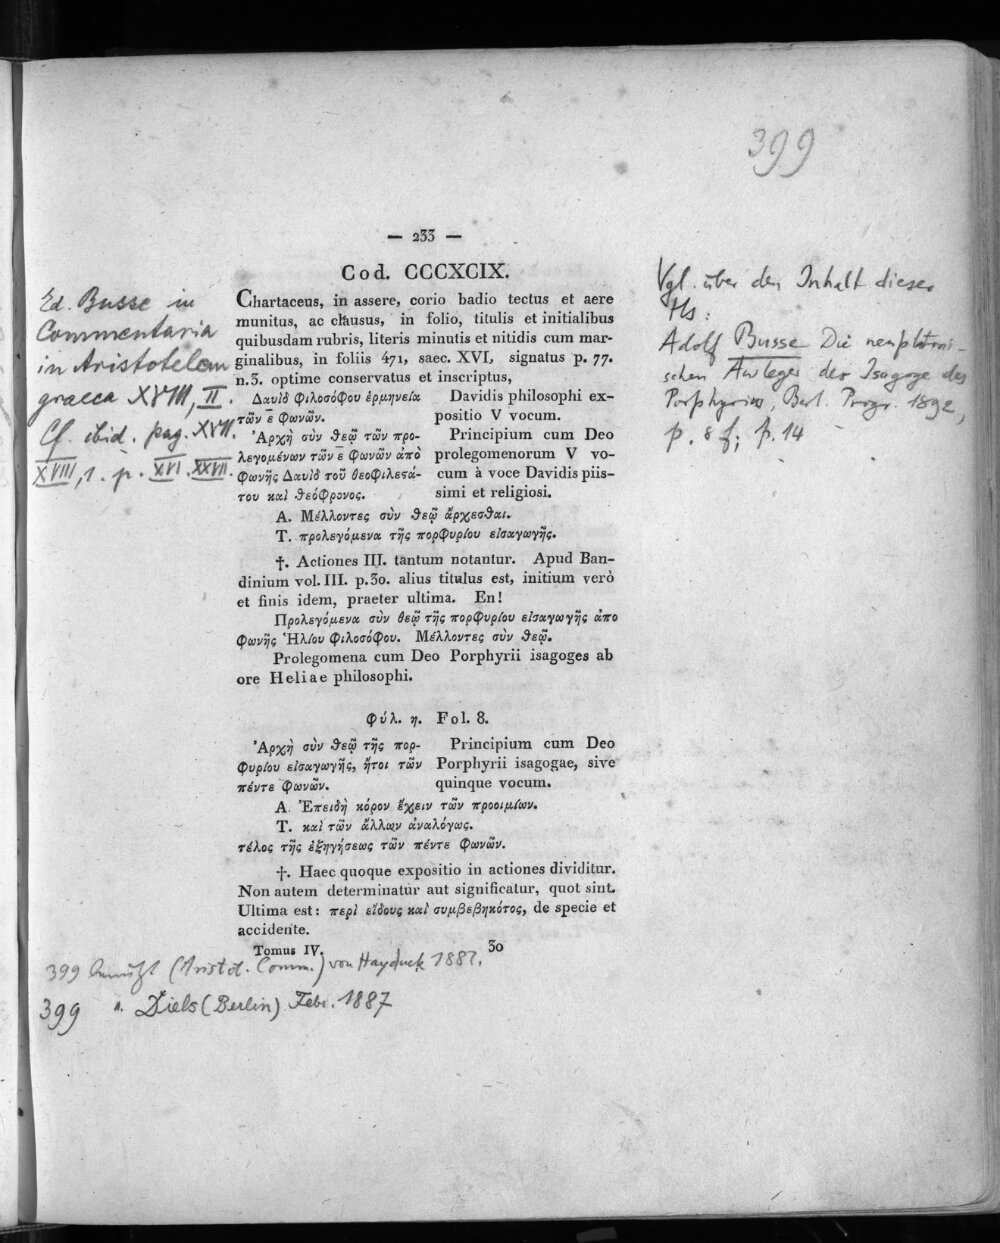 399
— 233 —
Cod. CCCXCIX.
Chartaceus, in assere, corio badio tectus et aere
munitus, ac clausus, in folio, titulis et initialibus
quibusdam rubris, literis minutis et nitidis cum mar-
ginalibus, in foliis 471, saec. XVI, signatus p. 77.
n.3. optime conservatus et inscriptus,
Δαυὶδ φιλοσόφου ἑρμηνεία
τῶν ε̄ φωνῶν.
Davidis philosophi ex-
positio V vocum.
Ἀρχὴ σὺν θεῷ τῶν προ-
λεγομένων τῶν ε φωνῶν ἀπὸ
φωνῆς Δαυὶδ τοῦ θεοφιλεϛά-
του καὶ θεόφρονος.
Principium cum Deo
prolegomenorum V vo-
cum à voce Davidis piis-
simi et religiosi.
Α. Μέλλοντες σὺν θεῷ ἄρχεσθαι.
Τ. προλεγόμενα τῆς πορφυρίου εἰσαγωγῆς.
†. Actiones III. tantum notantur. Apud Ban-
dinium vol. III. p.30. alius titulus est, initium verò
et finis idem, praeter ultima. En!
Προλεγόμενα σὺν θεῷ τῆς πορφυρίου εἰσαγωγῆς ἀπο
φωνῆς Ἡλίου φιλοσόφου. Μέλλοντες σὺν θεῷ.
Prolegomena cum Deo Porphyrii isagoges ab
ore Heliae philosophi.
φύλ. η. Fol. 8.
Ἀρχὴ σὺν θεῷ τῆς πορ-
φυρίου εἰσαγωγῆς, ἤτοι τῶν
πέντε φωνῶν.
Principium cum Deo
Porphyrii isagogae, sive
quinque vocum.
Α. Ἐπειδὴ κόρον ἔχειν τῶν προοιμίων.
Τ. καὶ τῶν ἄλλων ἀναλόγως.
τέλος τῆς ἐξηγήσεως τῶν πέντε φωνῶν.
†. Haec quoque expositio in actiones dividitur.
Non autem determinatur aut significatur, quot sint.
Ultima est: περὶ εἴδους καὶ συμβεβηκότος, de specie et
accidente.
Tomus IV. 30
Ed. Busse in
Commentaria
in Aristotelem
graeca XVIII, II.
Cf. ibid. pag. XVII.
XVIII, 1. p. XVI. XXVII.
Vgl. über den Inhalt dieser
Hs:
Adolf Busse Die neuplatoni-
schen Ausleger der Isagoge des
Porphyrius, Berl. Progr. 1892,
p. 8 f; p. 14
399 benützt (Aristot. Comm.) von Hayduck 1887.
399 Diels (Berlin) Febr. 1887